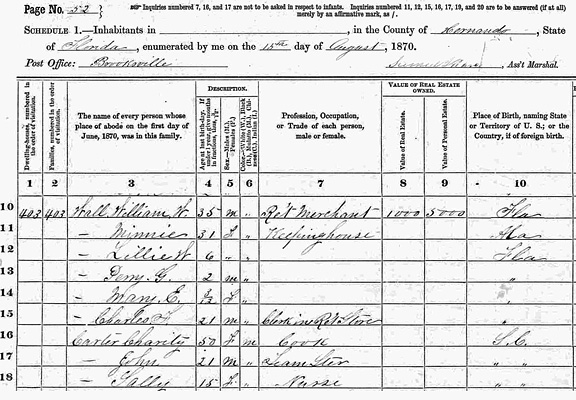 Page No. 52 } ☞ Inquiries numbered 7, 16, and 17 are not to be asked in respect to infants. Inquiries numbered 11, 12, 15, 16, 17, 19, and 20 are to be answered (if at all) merely by an affirmative mark, as /.
SCHEDULE 1.—Inhabitants in , in the County of Hernando, State
of Florida, enumerated by me on the 15th day of August, 1870.
Post Office: Brooksville , Ass't Marshal.
Dwelling-houses, numbered in the order of visitation.
Families, numbered in the order of visitation.
The name of every person whose place of abode on the first day of June, 1870, was in this family.
DESCRIPTION.
Age at last birth-day. If under 1 year, give months in fractions, thus, 3/12
Sex.—Males (M.), Females (F.)
Color.—White (W.), Black (B.), Mulatto (M.), Chinese (C.), Indian (I.)
Profession, Occupation, or Trade of each person, male or female.
VALUE OF REAL ESTATE OWNED.
Value of Real Estate.
Value of Personal Estate.
Place of Birth, naming State or Territory of U. S.; or the Country, if of foreign birth.
1 2 3 4 5 6 7 8 9 10
10 403 403 Wall, William W. 35 m " Ret Merchant 1000 5000 Fla
11 — Minnie 31 f " Keeping house
12 — Lillie W 6 " " Fla
13 — Perry G. 2 m " "
14 — Mary E. f " "
15 — Charles F. 21 m " Clerk in Ret Store "
16 Carter Charity 50 f m Cook S.C.
17 — John 21 M " Teamster " "
18 — Sally 15 f " Nurse " "